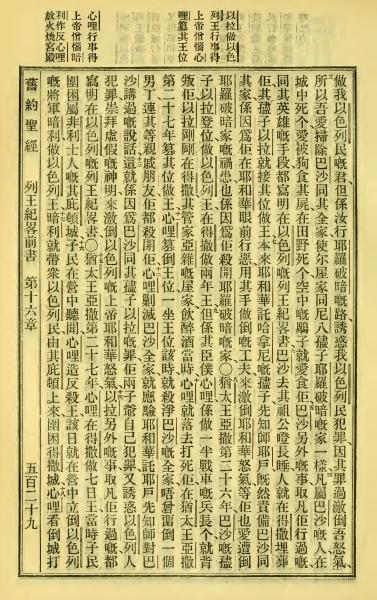 以拉做以色
列王行事得
上帝憎惱心
哩篡其王位
心哩行事得
上帝憎惱暗
利作反心哩
放火燒宮殿
做我以色列民嘅君但係汝行耶羅破暗嘅路誘惑我以色列民犯罪因其罪過激倒吾怒氣
所以吾愛掃除巴沙同其全家使尔屋家同尼八孻子耶羅破暗嘅家一樣凡屬巴沙嘅人在
城中死个愛被狗食其屍在田野死个空中嘅鷂子就愛食佢巴沙另外嘅事取凡佢行過嘅
同其英雄嘅手段都寫明在以色列嘅列王紀畧書巴沙去其祖公長睡人就在得撒埋葬
佢其孻子以拉就接其位做王本來耶和華託哈拿尼嘅孻子先知師耶戶既然責備巴沙同
其家係因爲佢在耶和華眼前行惡用其手做倒嘅工夫來激倒耶和華怒氣等佢也愛遭倒
耶羅破暗家嘅禍患也係因爲佢殺開耶羅破暗嘅家〇猶太王亞撒第二十六年巴沙嘅孻
子以拉登位做以色列王在得撒做兩年王但係其臣僕心哩係做一半戰車嘅兵長个就背
叛佢以拉剛剛在得撒其管家亞雜嘅屋家飲醉酒當時心哩就落去打死佢在猶太王亞撒
第二十七年篡其位做王心哩篡倒王位一坐王位該時就殺淨巴沙嘅全家唔曾畱倒一個
男丁連其等親戚朋友佢都殺開佢心哩剿滅巴沙全家就應驗耶和華託耶戶先知師對巴
沙講過嘅說話這就係因爲巴沙同其孻子以拉嘅罪佢兩子爺自己犯罪又誘惑以色列人
犯罪崇拜虛假嘅神明來激倒以色列嘅上帝耶和華怒氣以拉另外嘅事取凡佢行過嘅都
寫明在以色列嘅列王紀畧書〇猶太王亞撒第二十七年心哩在得撒做七日王當時子民
圍困屬非利士人嘅其庇頓城子民在營中聽聞心哩造反殺王該日就在營中立倒以色列
嘅將軍暗利做以色列王暗利就帶衆以色列民由其庇頓上來圍困得撒城心哩看倒城打
舊約聖經
列王紀畧前書
第十六章
五百二十九